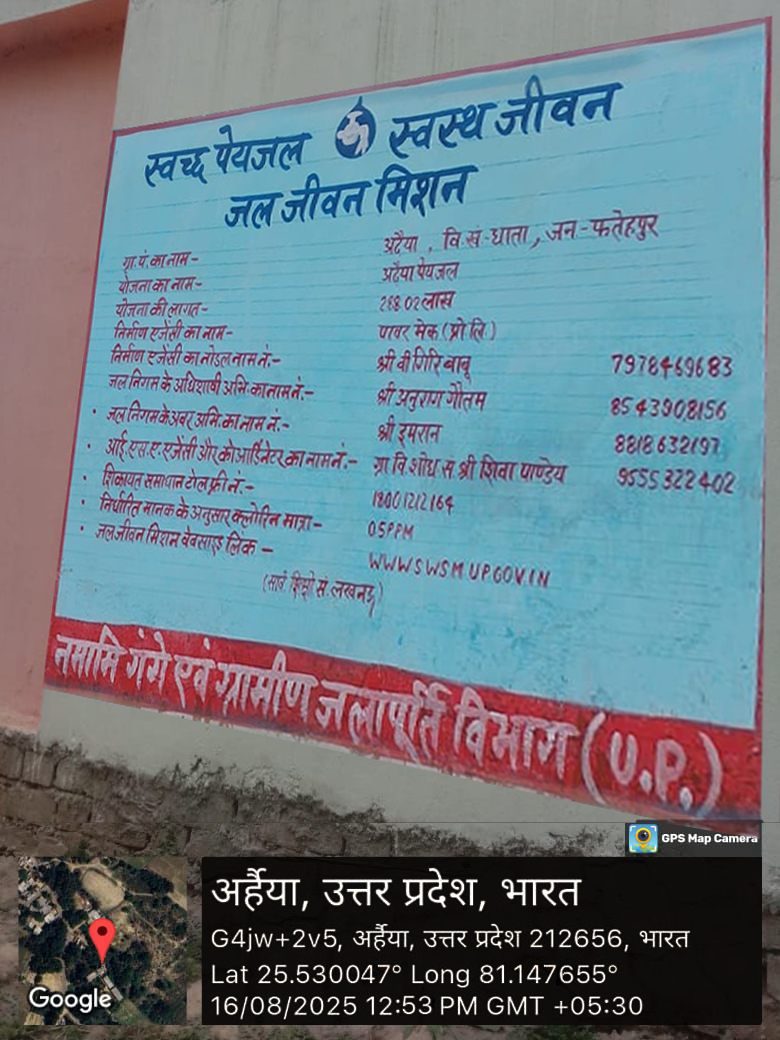 स्वच्छ पेयजल स्वस्थ जीवन
जल जीवन मिशन
ग्रा.पं.का नाम- अढैया, वि.सं.-धाता, जन-फतेहपुर
योजना का नाम- अढैया पेयजल
योजना की लागत- 288.02 लाख
निर्माण एजेंसी का नाम- पावर मेक (प्रो.लि.)
निर्माण एजेंसी का नोडल नाम नं.- श्री वी गिरि बाबू 7978469683
जल निगम के अधिशाषी अभि.का नाम नं.- श्री अनुराग गौतम 8543908156
• जल निगम के अवर अभि.का नाम नं.- श्री इमरान 8818632197
• आई.एस.ए.एजेंसी और कोआर्डिनेटर का नाम नं.- ग्रा वि शोध सं श्री शिवा पाण्डेय 9555322402
• शिकायत समाधान टोल फ्री नं.- 18001212164
• निर्धारित मानक के अनुसार क्लोरिन मात्रा- 05PPM
• जल जीवन मिशन वेबसाइड लिंक - WWWSWSMUP.GOV.IN
लखनऊ)
नमामि गंगे एवं ग्रामीण जलापूर्ति विभाग (U.P.)
GPS Map Camera
अर्हैया, उत्तर प्रदेश, भारत
G4jw+2v5, अर्हैया, उत्तर प्रदेश 212656, भारत
Lat 25.530047° Long 81.147655°
16/08/2025 12:53 PM GMT +05:30
Google